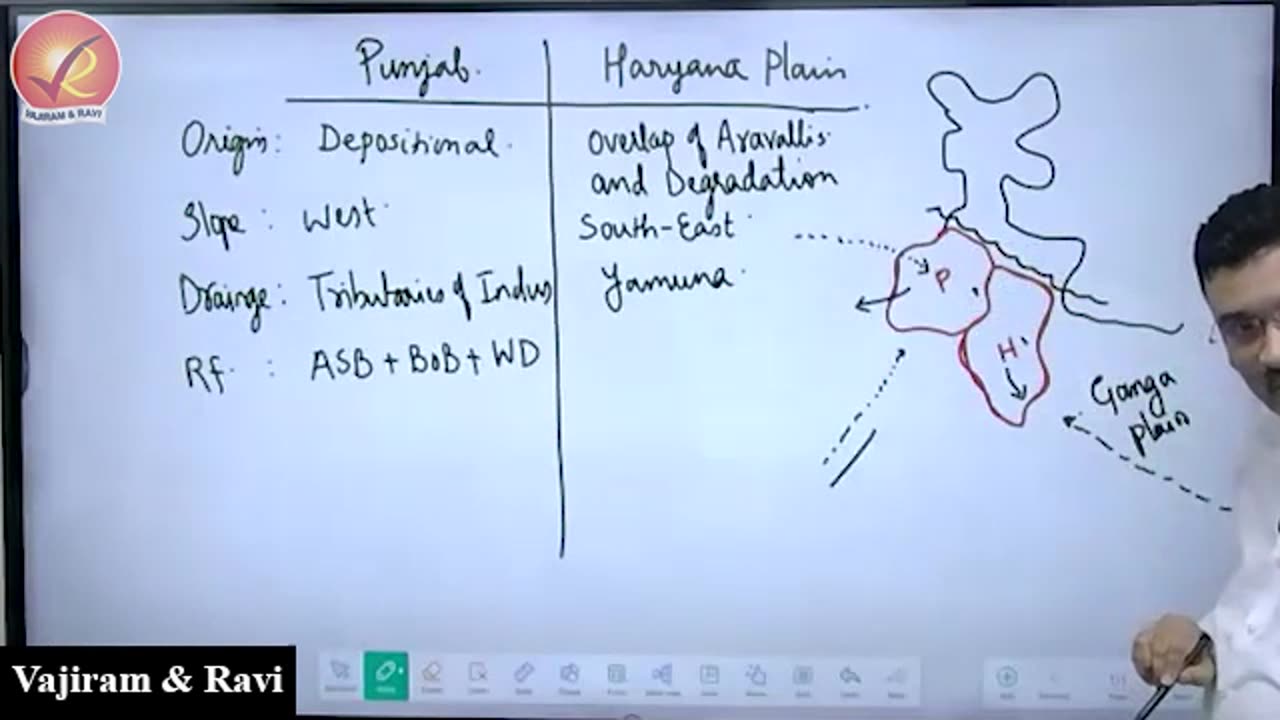 VAJIRAM & RAVI
Punjab. Haryana Plain
Origin: Depositional. Overlap of Aravallis
and Degradation
Slope: West South-East
Drainge: Tributaries of Indus Yamuna
Rf. : ASB + BoB + WD
P
H
Ganga
Plain
Vajiram & Ravi